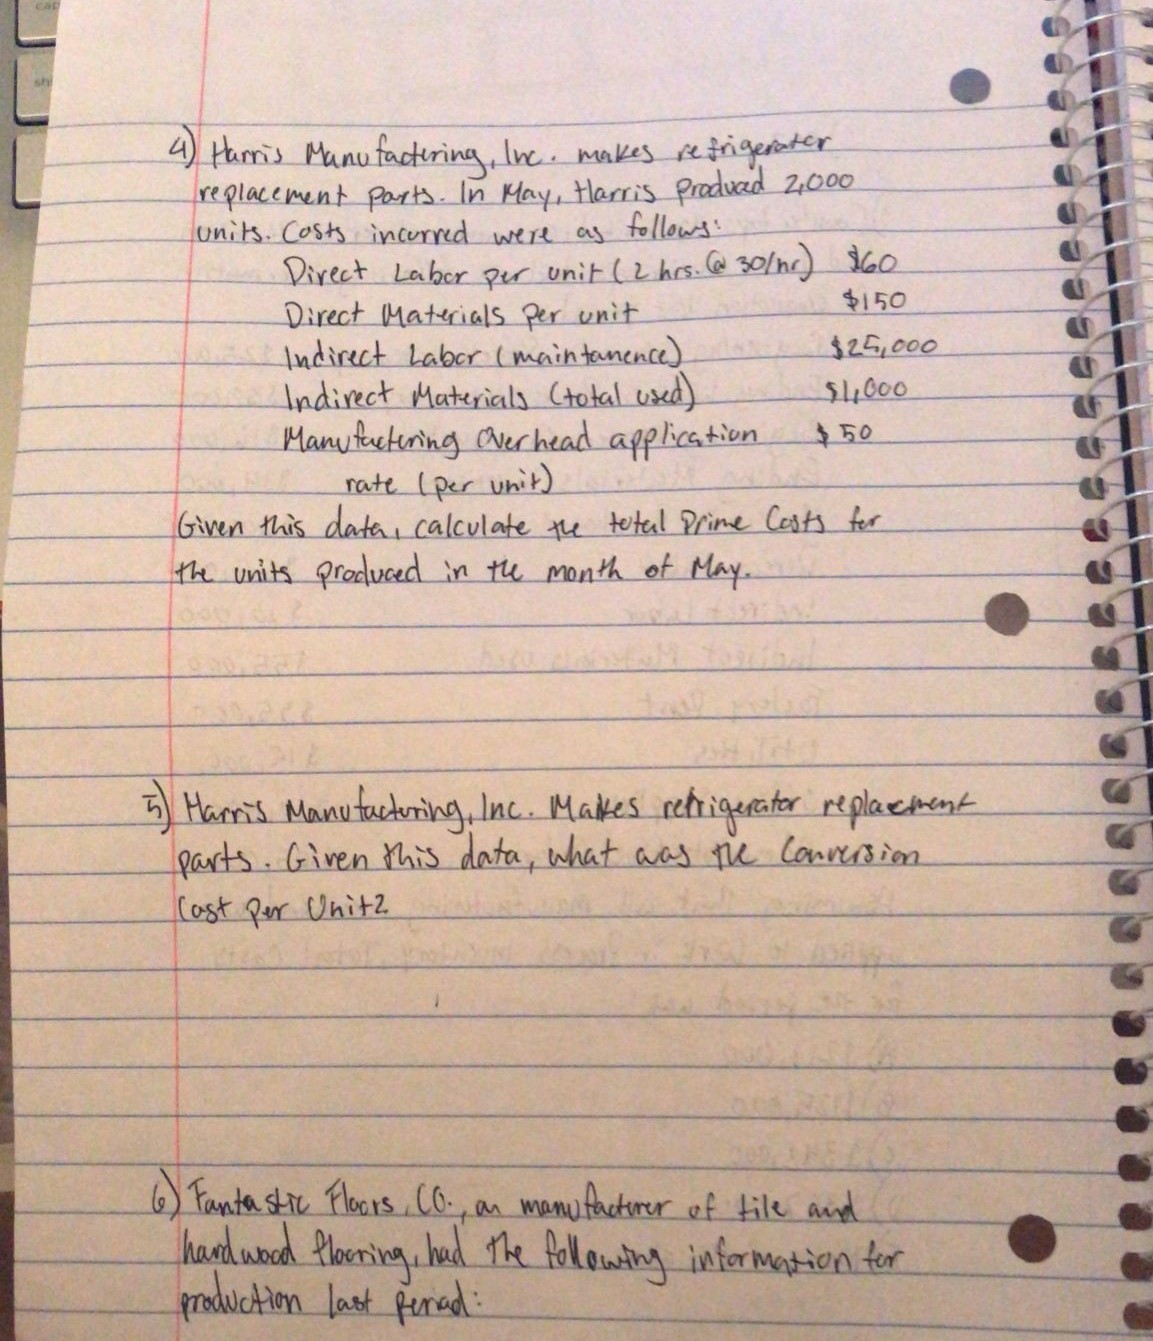 4) Harris Manufacturing, Inc. makes refrigerator
replacement parts. In May, Harris produced 2,000
units. Costs incurred were as follows:
Direct Labor per unit (2 hrs. @ 30/hr) $60
Direct Materials per unit $150
Indirect Labor (maintanence) $25,000
Indirect Materials (total used) $1,000
Manufacturing Overhead application $50
rate (per unit)
Given this data, calculate the total Prime Costs for
the units produced in the month of May.
5) Harris Manufacturing, Inc. Makes refrigerator replacement
parts. Given this data, what was the Conversion
Cost per Unit?
6) Fantastic Floors, CO., an manufacturer of tile and
hardwood flooring, had the following information for
production last period: